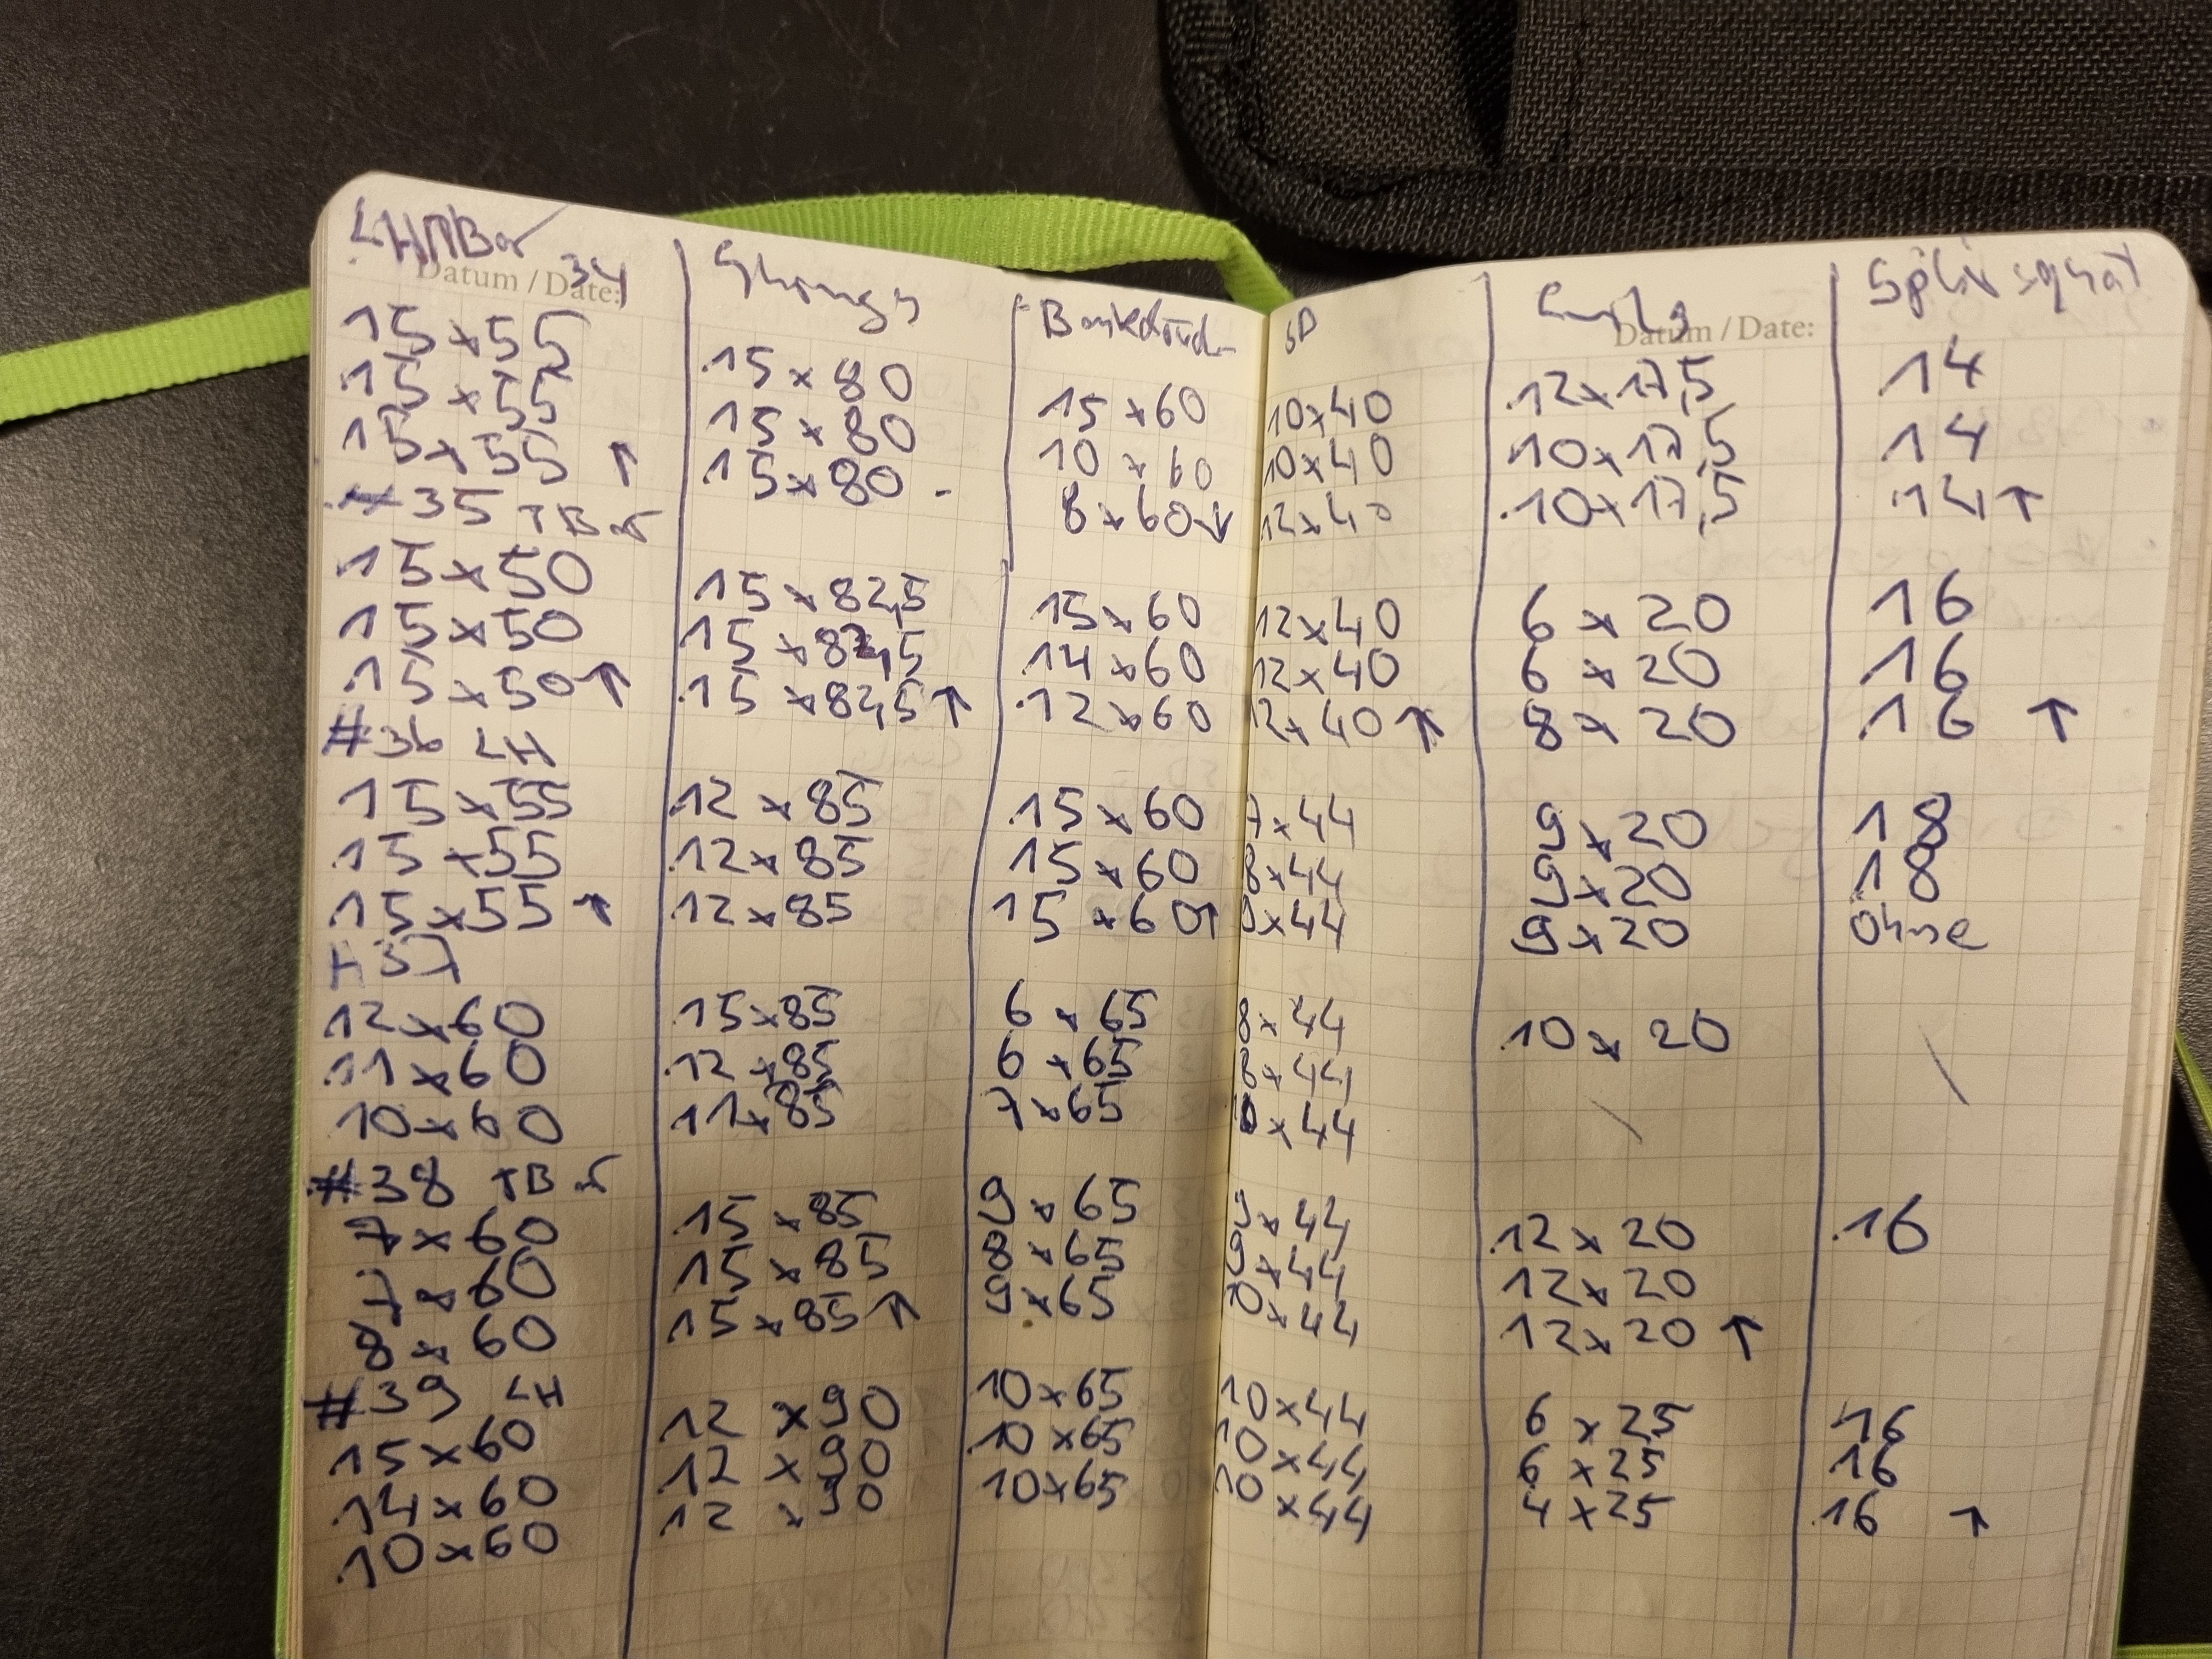 LH TBar 34
Datum / Date:
15 x 55
15 x 55
15 x 55 ↑
#35 TBar
15 x 50
15 x 50
15 x 50 ↑
#36 LH
15 x 55
15 x 55
15 x 55 ↑
#37
12 x 60
11 x 60
10 x 60
#38 TBar
7 x 60
7 x 60
8 x 60
#39 LH
15 x 60
14 x 60
10 x 60
15 x 80
15 x 80
15 x 80 -
15 x 82,5
15 x 82,5
15 x 82,5 ↑
12 x 85
12 x 85
12 x 85
15 x 85
12 x 85
11 x 85
15 x 85
15 x 85
15 x 85 ↑
12 x 90
12 x 90
12 x 90
Bankdrück
15 x 60
10 x 60
8 x 60 ↓
15 x 60
14 x 60
12 x 60
15 x 60
15 x 60
15 x 60 ↑
6 x 65
6 x 65
7 x 65
9 x 65
8 x 65
9 x 65
10 x 65
10 x 65
10 x 65
SP
10 x 40
10 x 40
12 x 40
12 x 40
12 x 40
12 x 40 ↑
7 x 44
8 x 44
8 x 44
8 x 44
8 x 44
x 44
9 x 44
9 x 44
10 x 44
10 x 44
10 x 44
10 x 44
Curls
Datum / Date:
12 x 17,5
10 x 17,5
10 x 17,5
6 x 20
6 x 20
8 x 20
9 x 20
9 x 20
9 x 20
10 x 20
12 x 20
12 x 20
12 x 20 ↑
6 x 25
6 x 25
4 x 25
Split squat
14
14
14 ↑
16
16
16 ↑
18
18
ohne
16
16
16
16 ↑